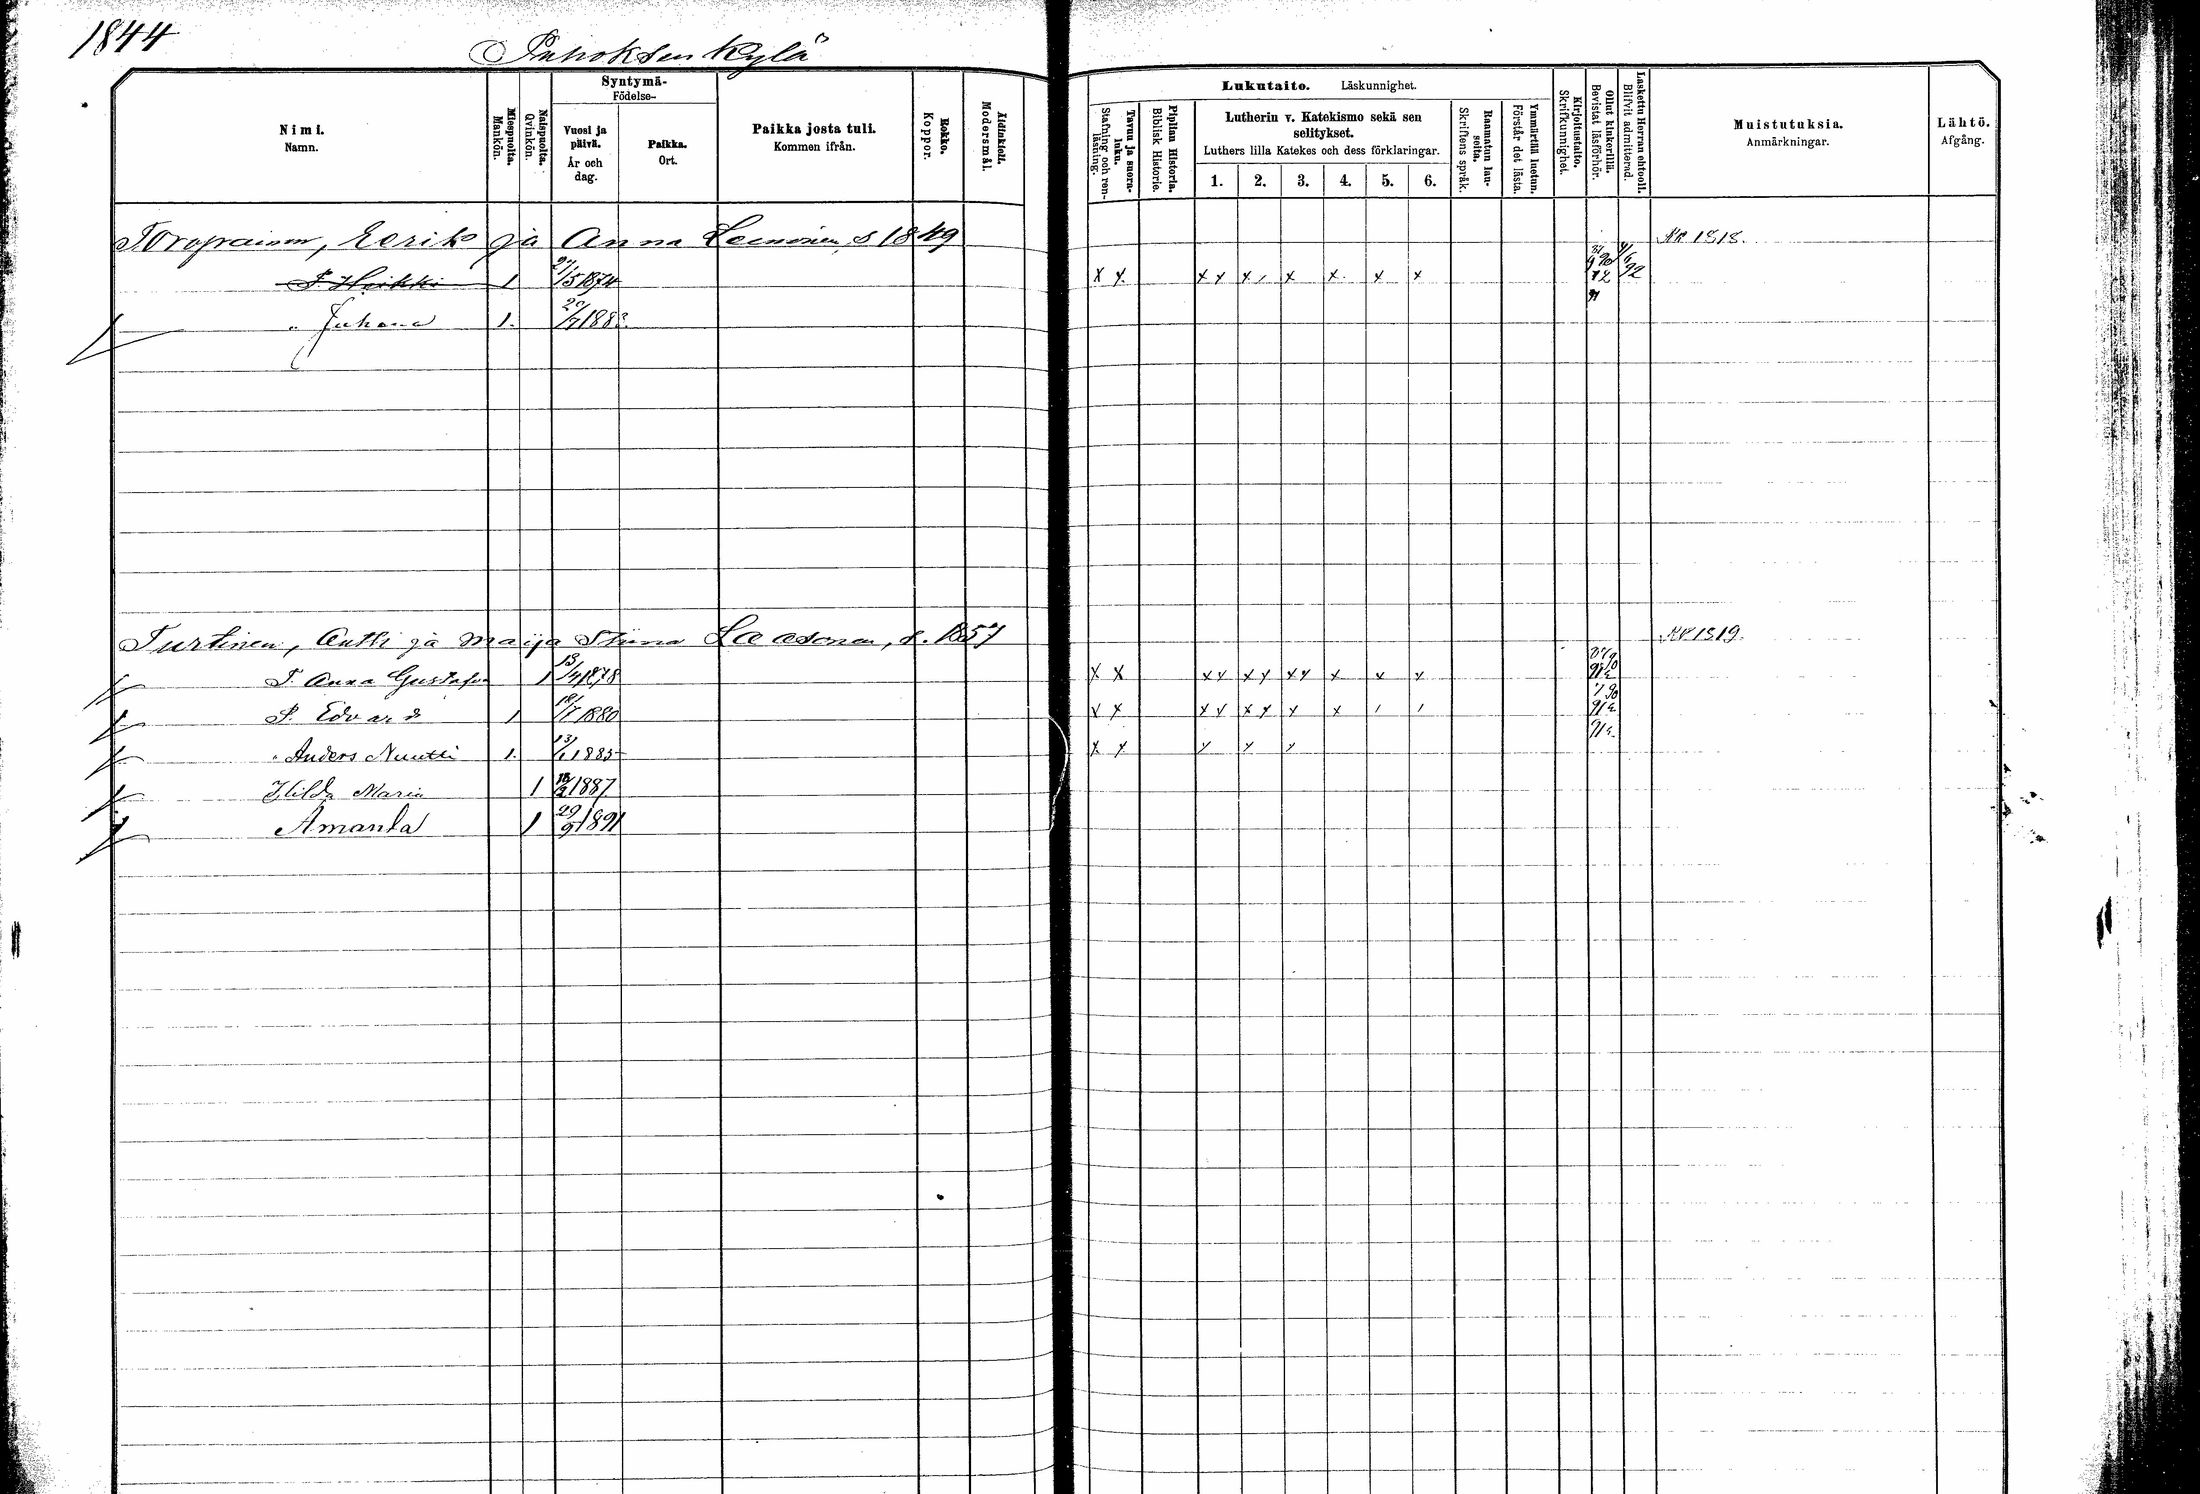 1844
Puhoksen Kylä
Nimi.
Namn.
Miespuolta.
Mankön.
Naispuolta.
Qvinkön.
Syntymä-
Födelse-
Vuosi ja päivä.
År och dag.
Paikka.
Ort.
Paikka josta tuli.
Kommen ifrån.
Rokko.
Koppor.
Äidinkieli.
Modersmål.
Lukutaito. Läskunnighet.
Tavuu ja suora-luku.
Stafning och ren-läsning.
Piplian Historia.
Biblisk Historie.
Lutherin v. Katekismo sekä sen selitykset.
Luthers lilla Katekes och dess förklaringar.
1. 2. 3. 4. 5. 6.
Raamatun lau-seita.
Skriftens språk.
Ymmärtää luetun.
Förstår det lästa.
Kirjoitustaito.
Skrifkunnighet.
Ollut kinkerillä.
Bevistat läsförhör.
Laskettu Herran ehtooll.
Blifvit admitterad.
Muistutuksia.
Anmärkningar.
Lähtö.
Afgång.
Toropainen, Eerik ja Anna Leinonen, s 1849 RK 1818.
T Heikki 1 27/5 1874 x x x x x x x x x x
" Juhana 1. 20/7 1883.
Turtinen, Antti ja Maija Stiina Laasonen, s. 1857 RK 1819.
T. Anna Gustafva 1 13/4 1878 x x x x x x x x x x x
T. Edvard 1 18/7 1880 x x x x x x x x
" Anders Nuutti 1. 13/1 1885 x x x x x
Hilda Maria 1 18/2 1887
Amanda 1 29/9 1891